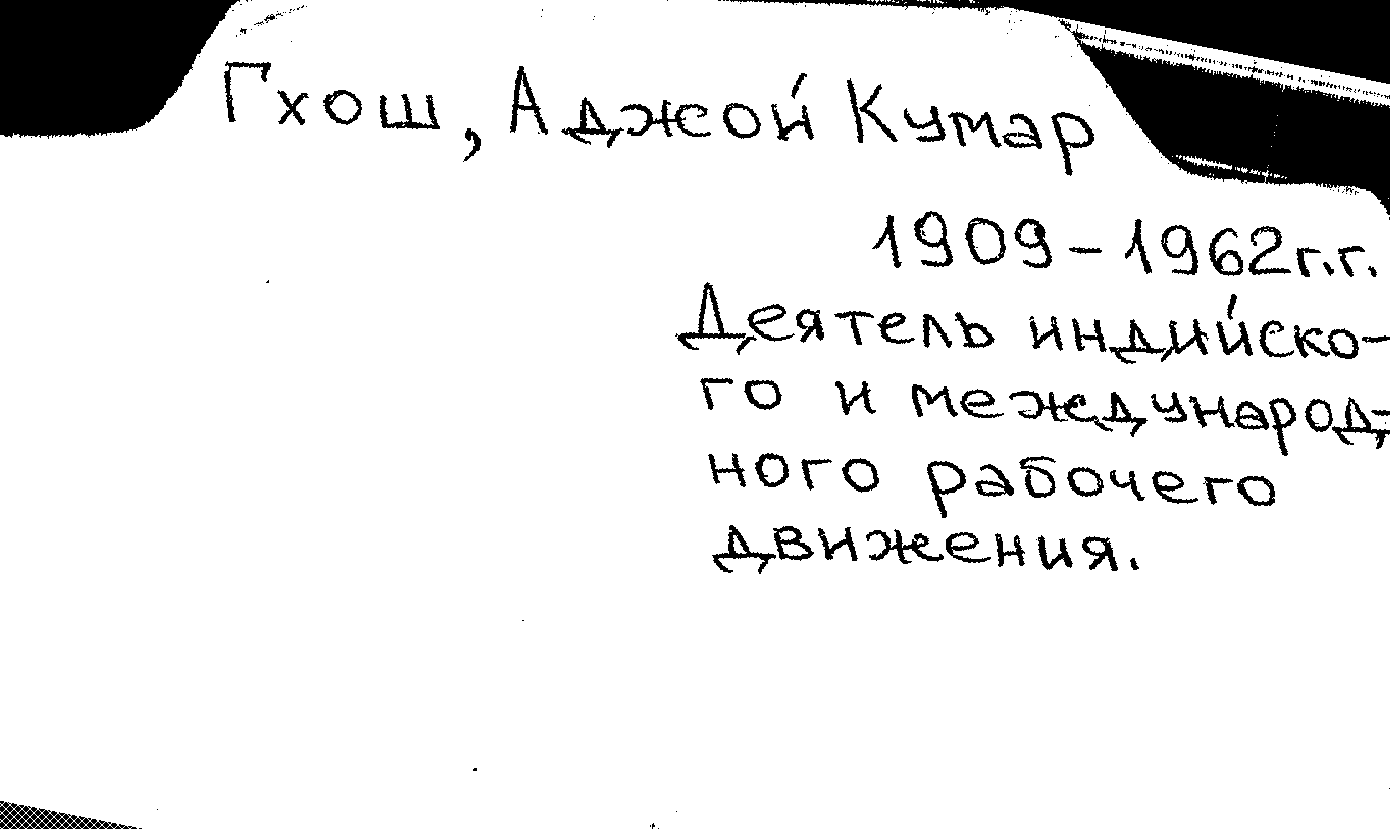 Гхош, Аджой Кумар
1909-1962г.г.
Деятель индийско-
го и международ-
ного рабочего
движения.